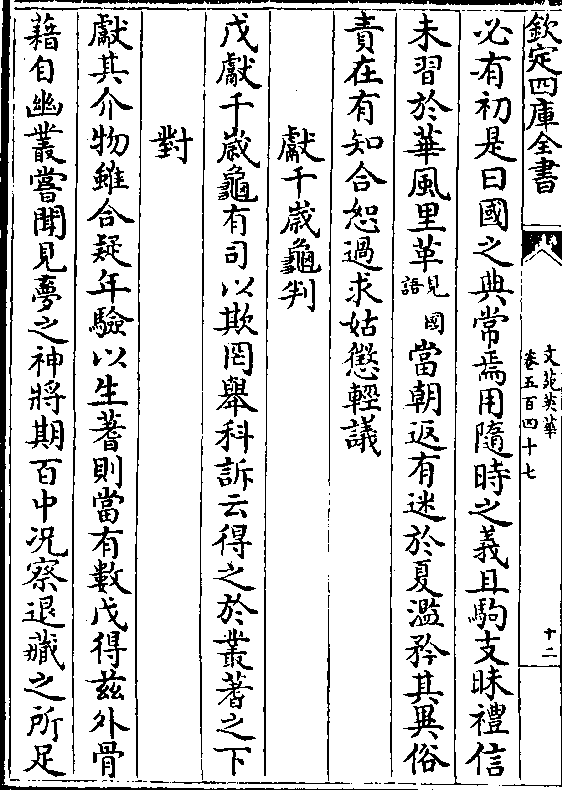 欽定四庫全書
文苑英華
卷五百四十七
十二
必有初是曰國之典常焉用隨時之義且駒支昧禮信
未習於華風里革見國語當朝返有迷於夏濫矜其異俗
責在有知合恕過求姑懲輕議
獻千歲龜判
戊獻千歲龜有司以欺罔舉科訴云得之於叢蓍之下
對
獻其介物雖合疑年驗以生蓍則當有數戊得茲外骨
藉自幽叢嘗聞見夢之神將期百中况察退藏之所足